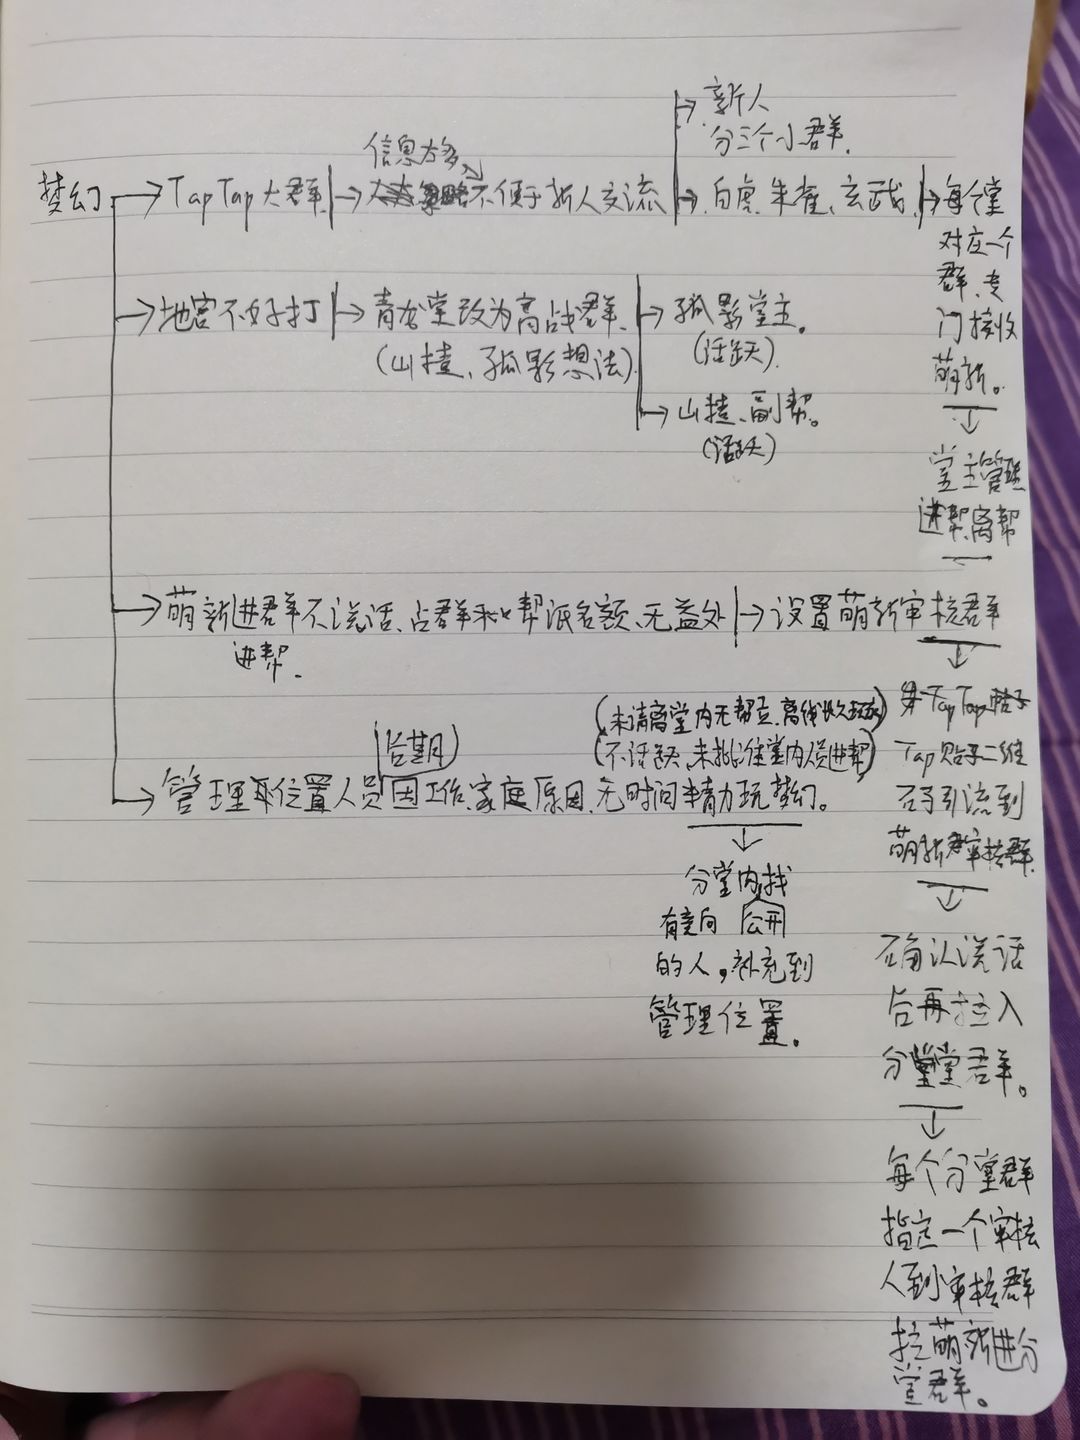 梦幻 → TapTap大群 → 信息太多, 不便于新人交流
→ 新人
分三个小群.
→ 白虎、朱雀、玄武. → 每个堂
对应一个
群、专
门接收
萌新。
↓
堂主管理
进帮、离帮
→ 地宫不好打 → 青龙堂改为高战群、
(山楂、孤影想法).
→ 孤影堂主。
(活跃).
→ 山楂、副帮。
(活跃)
→ 萌新进群不说话、占群和帮派名额、无益处 → 设置萌新审核群
进帮.
↓
TapTap帖子
Tap贴子二维
码引流到
萌新审核群.
↓
确认说话
后再拉入
分堂群。
↓
每个分堂群
指定一个审核
人到审核群
拉萌新进分
堂群。
(未清离堂内无帮贡、离线久玩家)
(不活跃、未批准堂内人员进帮)
→ 管理位置人员(后期)因工作、家庭原因、无时间精力玩梦幻。
↓
分堂内找
有意向 公开
的人,补充到
管理位置。